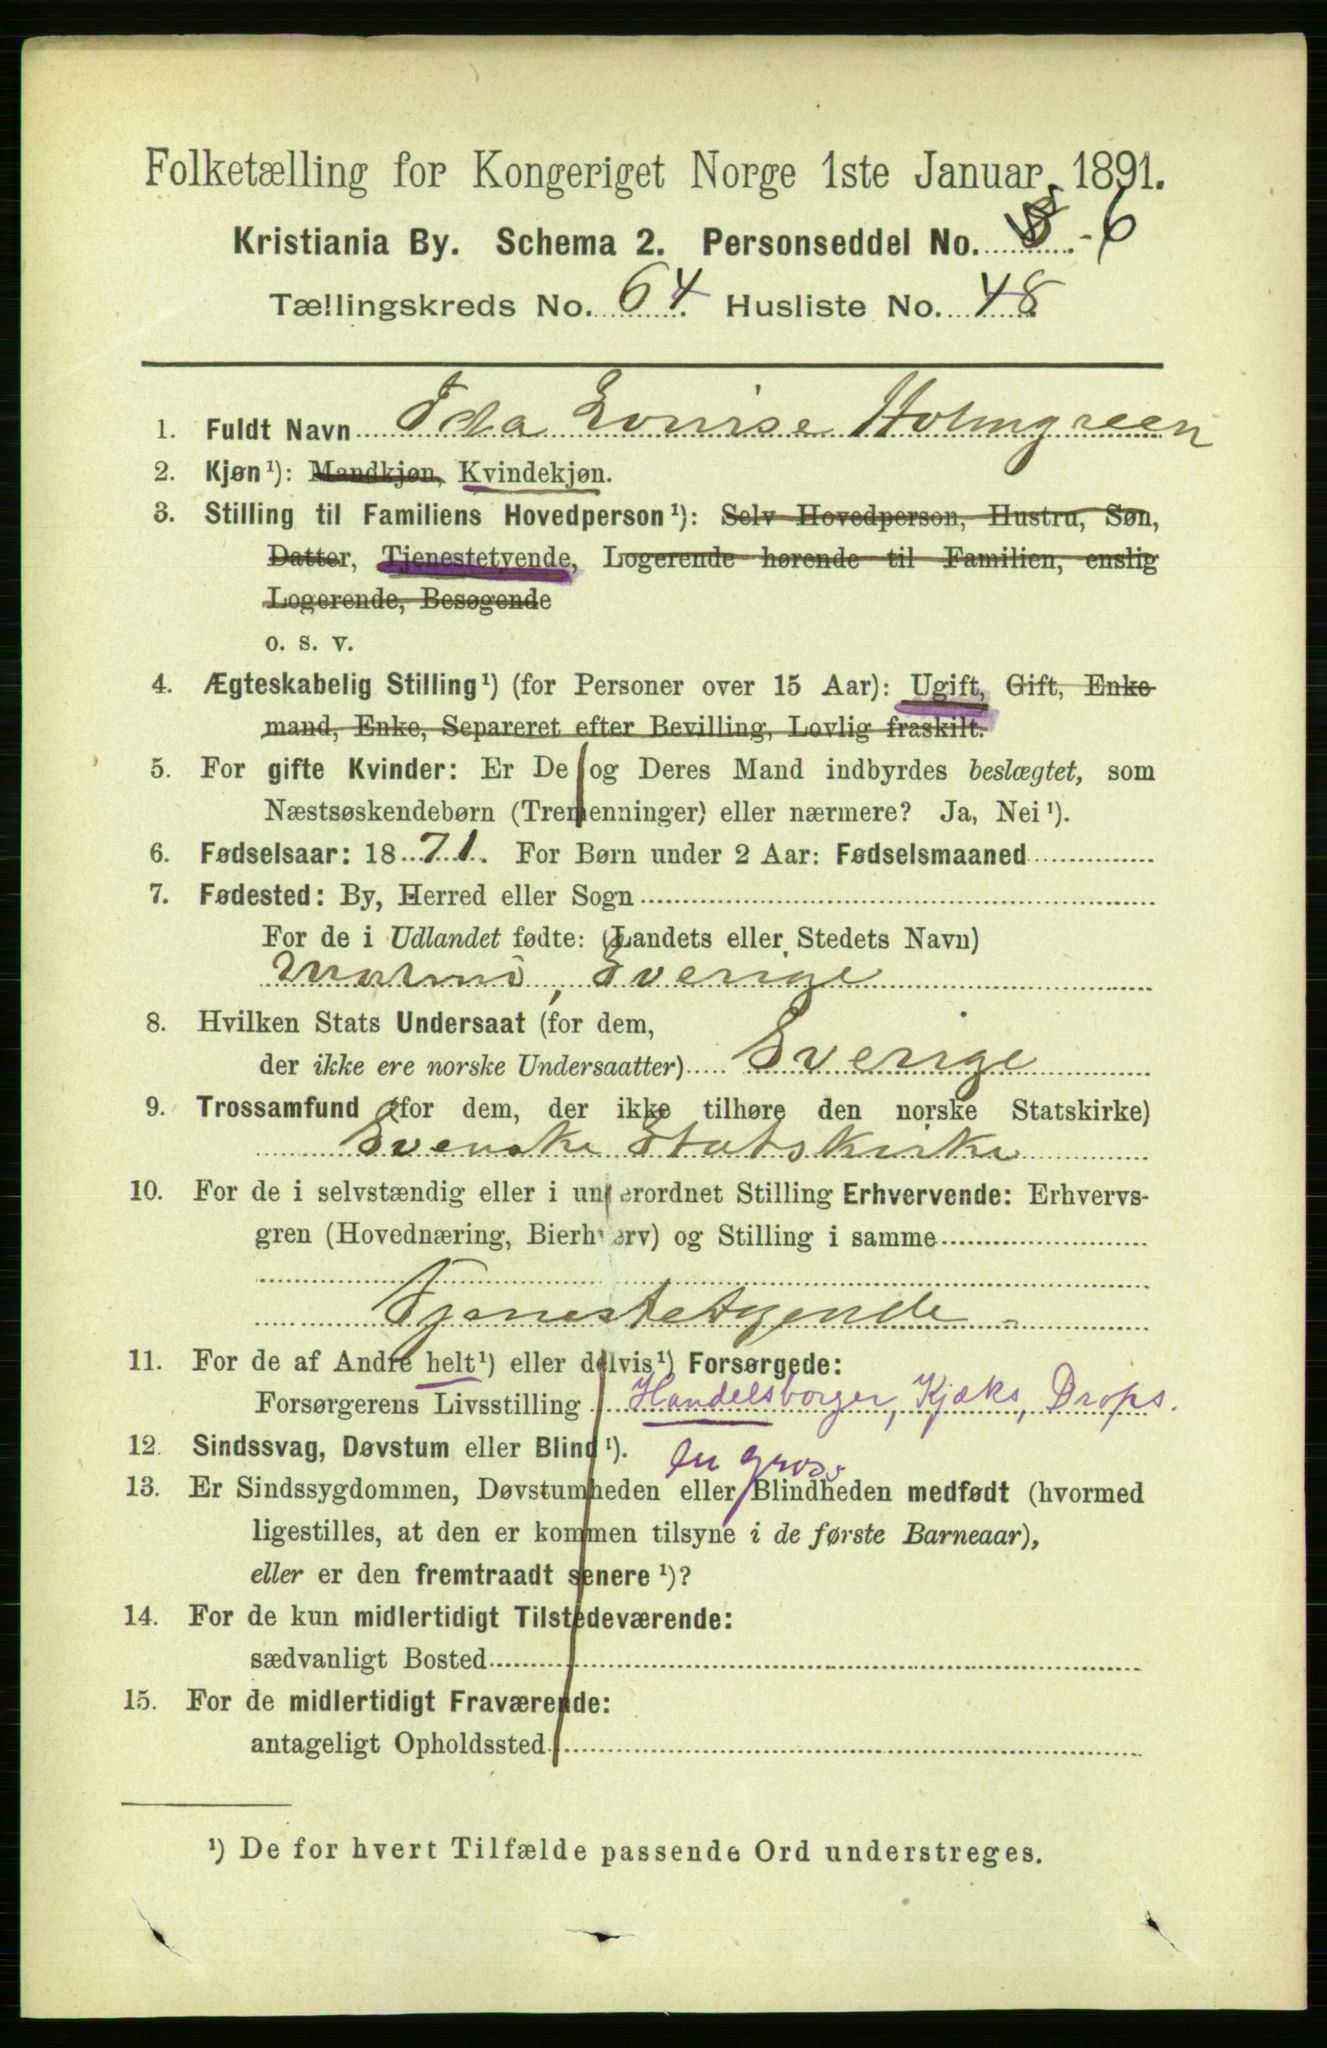 Folketælling for Kongeriget Norge 1ste Januar 1891.
Kristiania By. Schema 2. Personseddel No. 6
Tællingskreds No. 64. Husliste No. 48
1. Fuldt Navn Ida Louise Holmgreen
2. Kjøn¹): Mandkjøn, Kvindekjøn.
3. Stilling til Familiens Hovedperson¹): Selv Hovedperson, Hustru, Søn,
Datter, Tjenestetyende, Logerende hørende til Familien, enslig
Logerende, Besøgende
o. s. v.
4. Ægteskabelig Stilling¹) (for Personer over 15 Aar): Ugift, Gift, Enke
mand, Enke, Separeret efter Bevilling, Lovlig fraskilt.
5. For gifte Kvinder: Er De og Deres Mand indbyrdes beslægtet, som
Næstsøskendebørn (Tremenninger) eller nærmere? Ja, Nei¹).
6. Fødselsaar: 1871. For Børn under 2 Aar: Fødselsmaaned
7. Fødested: By, Herred eller Sogn
For de i Udlandet fødte: (Landets eller Stedets Navn)
Malmö, Sverige
8. Hvilken Stats Undersaat (for dem,
der ikke ere norske Undersaatter) Sverige
9. Trossamfund (for dem, der ikke tilhøre den norske Statskirke)
Svenske Statskirke
10. For de i selvstændig eller i underordnet Stilling Erhvervende: Erhvervs-
gren (Hovednæring, Bierhverv) og Stilling i samme
Tjenestetyende
11. For de af Andre helt¹) eller delvis¹) Forsørgede:
Forsørgerens Livsstilling Handelsborger, Kjæks, Drops.
en gros
12. Sindssvag, Døvstum eller Blind¹).
13. Er Sindssygdommen, Døvstumheden eller Blindheden medfødt (hvormed
ligestilles, at den er kommen tilsyne i de første Barneaar),
eller er den fremtraadt senere¹)?
14. For de kun midlertidigt Tilstedeværende:
sædvanligt Bosted
15. For de midlertidigt Fraværende:
antageligt Opholdssted
¹) De for hvert Tilfælde passende Ord understreges.